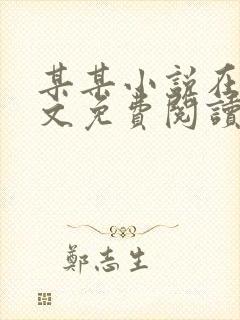 某某小說在
文免費閱讀
鄭志生